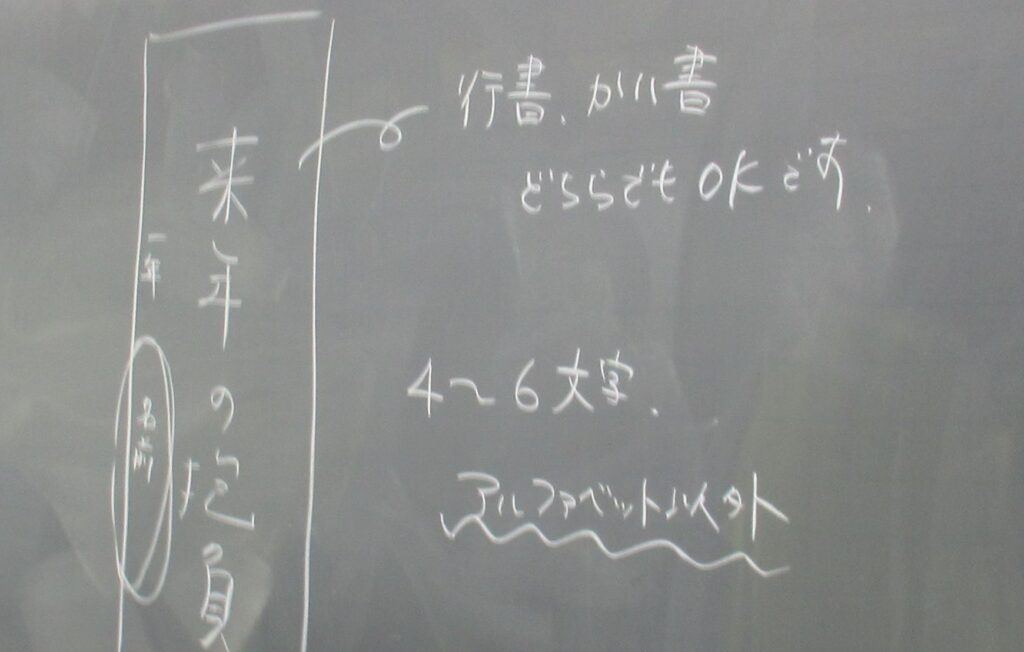 行書、かい書
どちらでもOKです.
4〜6文字.
アルファベット以外
来年の抱負
一年
名前